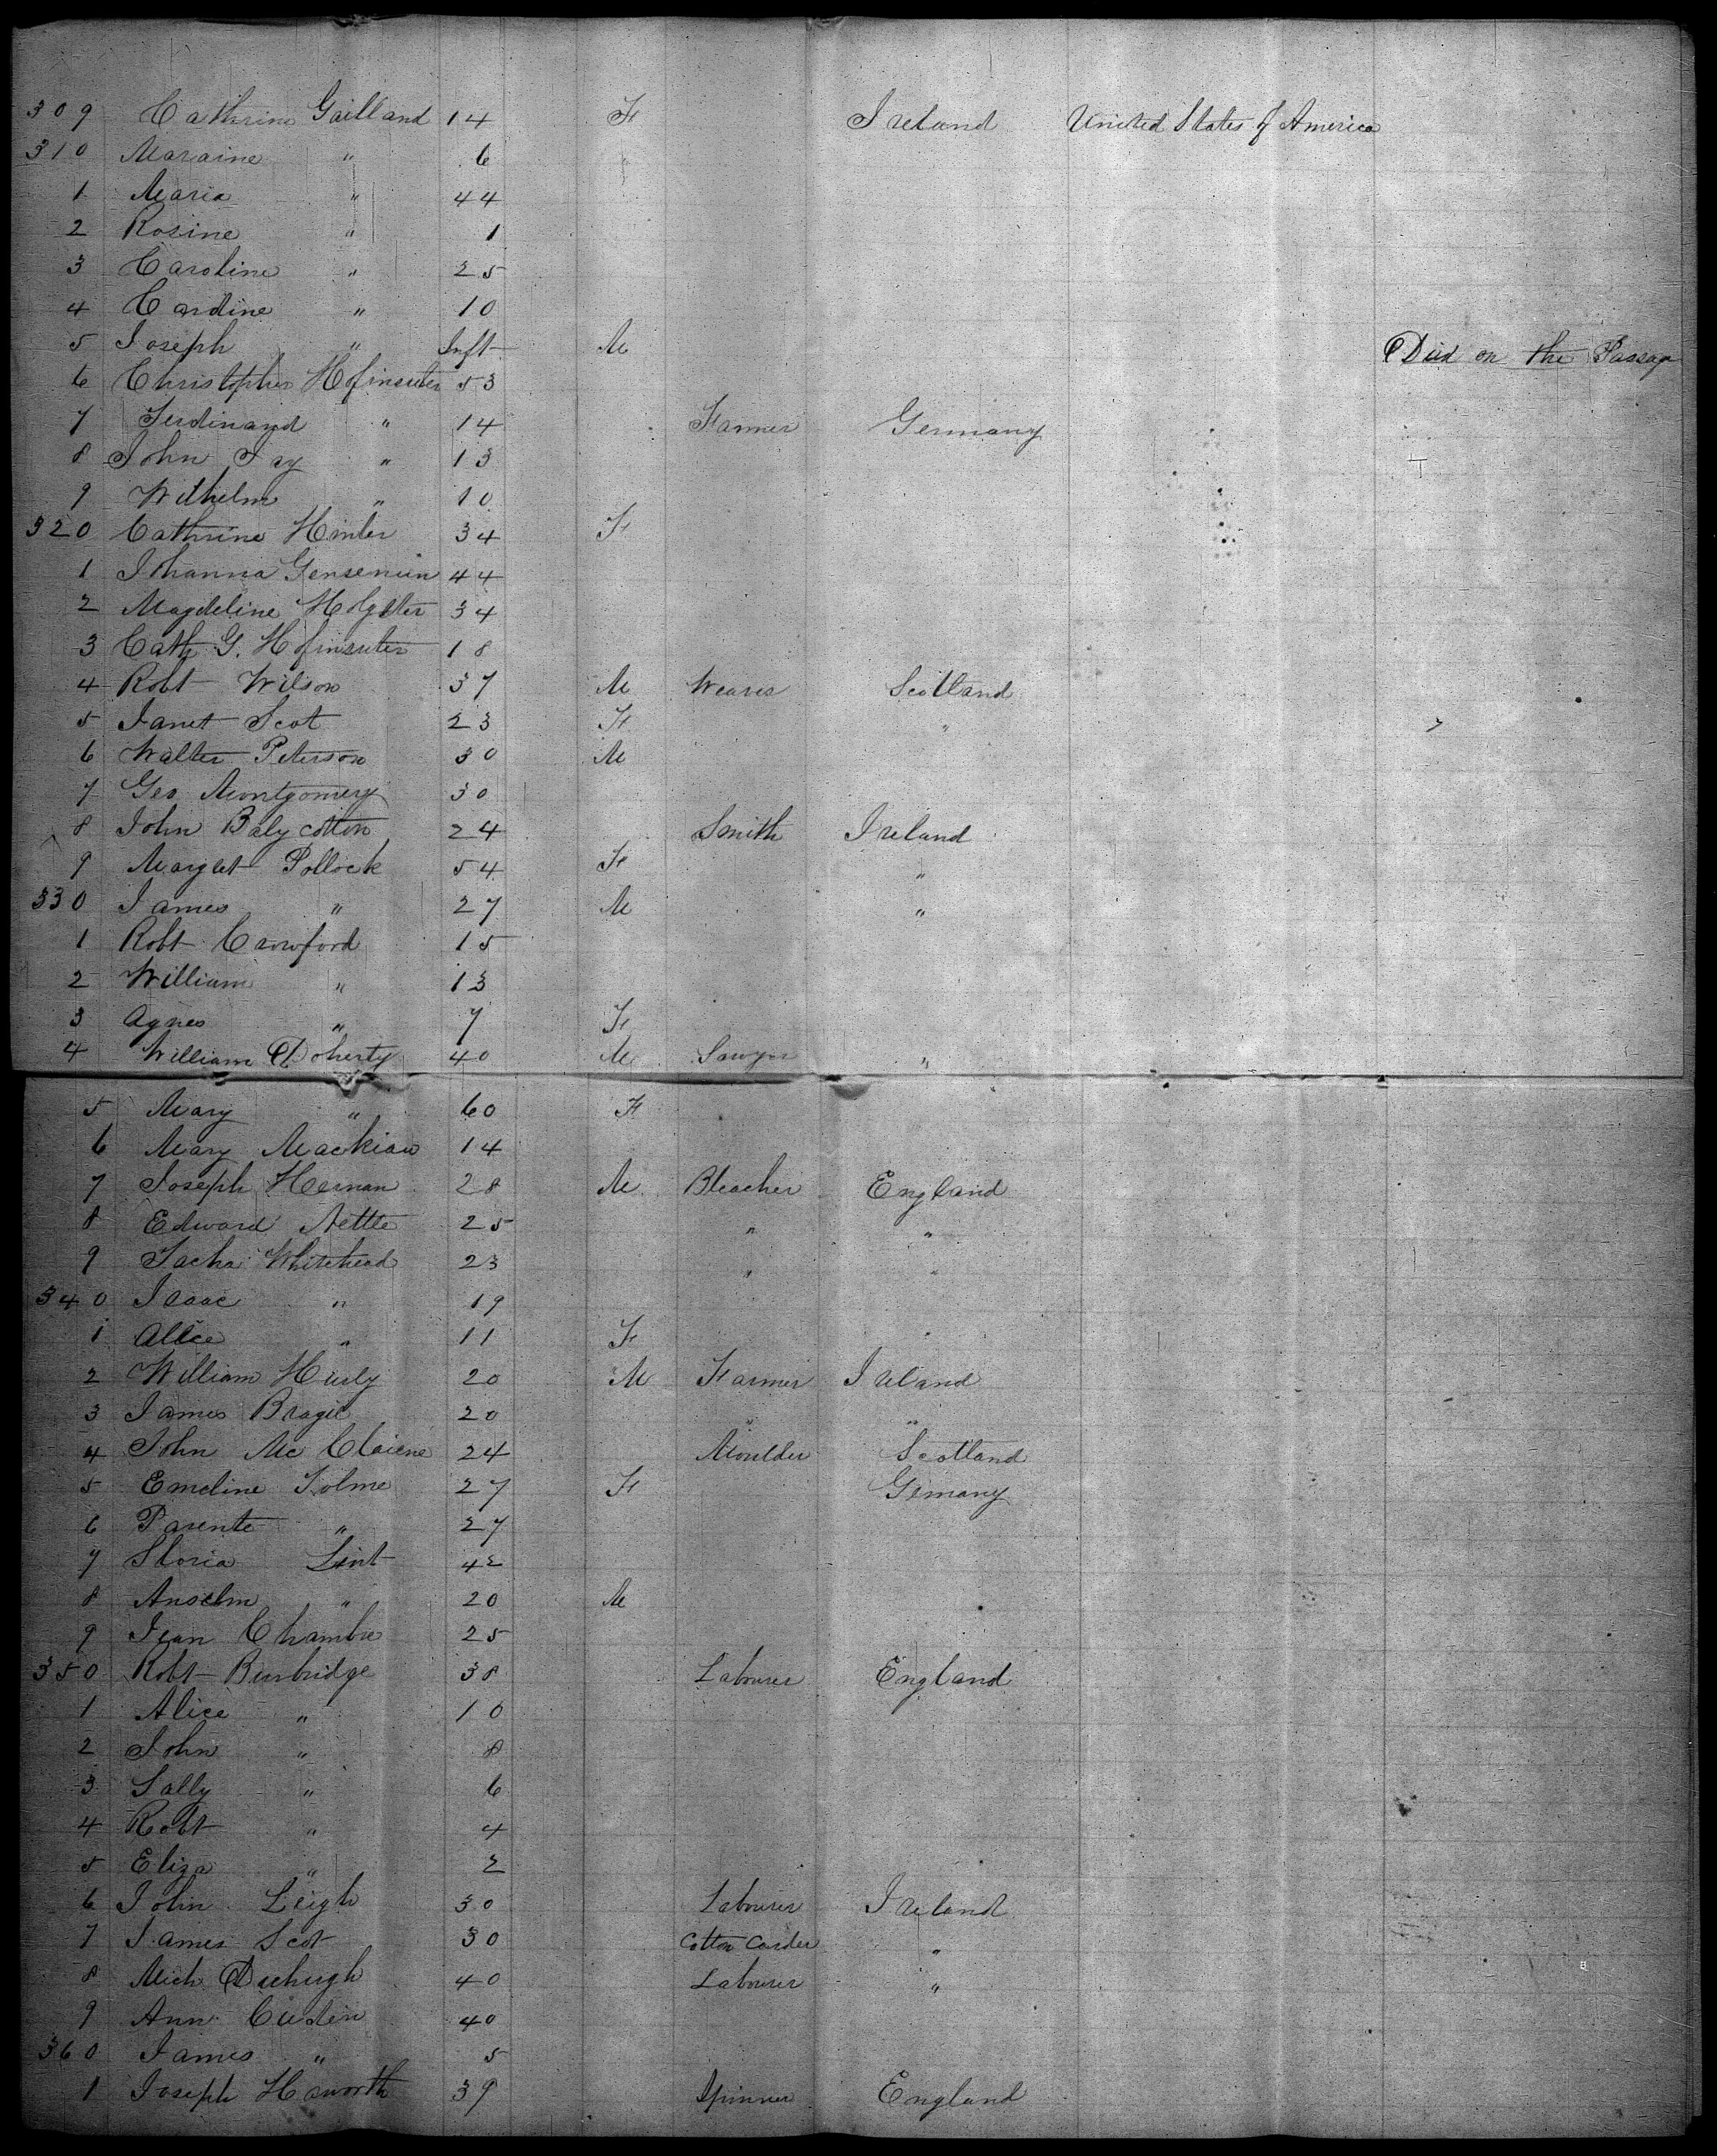 309 Cathrine Gailland 14 F Ireland United States of America
310 Maraine " 6 "
1 Maria " 44
2 Rosine " 1
3 Caroline " 25
4 Cardine " 10
5 Joseph " Inft M Died on the Passage
6 Christopher Hofinsuter 53
7 Ferdinand " 14 Farmer Germany
8 John Jay " 13
9 Wilhelm " 10
320 Cathrine Hinler 34 F
1 Johanna Genseniin 44
2 Magdeline Holgiter 34
3 Cath G. Hofinsuter 18
4 Robt Wilson 37 M Weaver Scotland
5 Janet Scot 23 F "
6 Walter Peterson 30 M
7 Geo Montgomery 30
8 John Balycotton 24 Smith Ireland
9 Margret Pollock 54 F "
330 James " 27 M "
1 Robt Crowford 15
2 William " 13
3 Agnes " 7 F
4 William Doherty 40 M Sawyer "
5 Mary " 60 F
6 Mary Mackian 14
7 Joseph Hernan 28 M Bleacher England
8 Edward Nettle 25 " "
9 Jacha Whitehead 23 " "
340 Isaac " 19
1 Alice " 11 F "
2 William Hurly 20 M Farmer Ireland
3 James Bragie 20 " "
4 John Mc Claiene 24 Moulder Scotland
5 Emeline Tolme 27 F Gemany
6 Parente " 27
7 Storia Lint 42
8 Anselm " 20 M
9 Jean Chambre 25
350 Robt Burbridge 38 Labourer England
1 Alice " 10
2 John " 8
3 Sally " 6
4 Robt " 4
5 Eliza " 2
6 John Leigh 30 Labourer Ireland
7 James Scot 30 Cotton Carder "
8 Mich 40 Labourer "
9 Ann 40
360 James " 5
1 Joseph Haworth 39 Spinner England